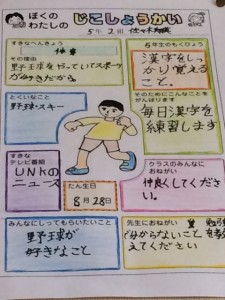 ぼくの
わたしの
じこしょうかい
5年2組 佐々木
すきなべんきょう
体育
その理由
野球をやっていてスポーツ
が好きだから。
5年生のもくひょう
漢字をしっ
かり覚える
こと。
とくいなこと
野球・スキー
そのためにこんなことを
がんばります
毎日漢字を
練習します
すきな
テレビ番組
UNKの
ニュース
たん生日
8月28日
クラスのみんなに
おねがい
仲良くしてくだ
さい。
みんなにしってもらいたいこと
野球が
好きなこと
先生におねがい
分からないこと
えてください